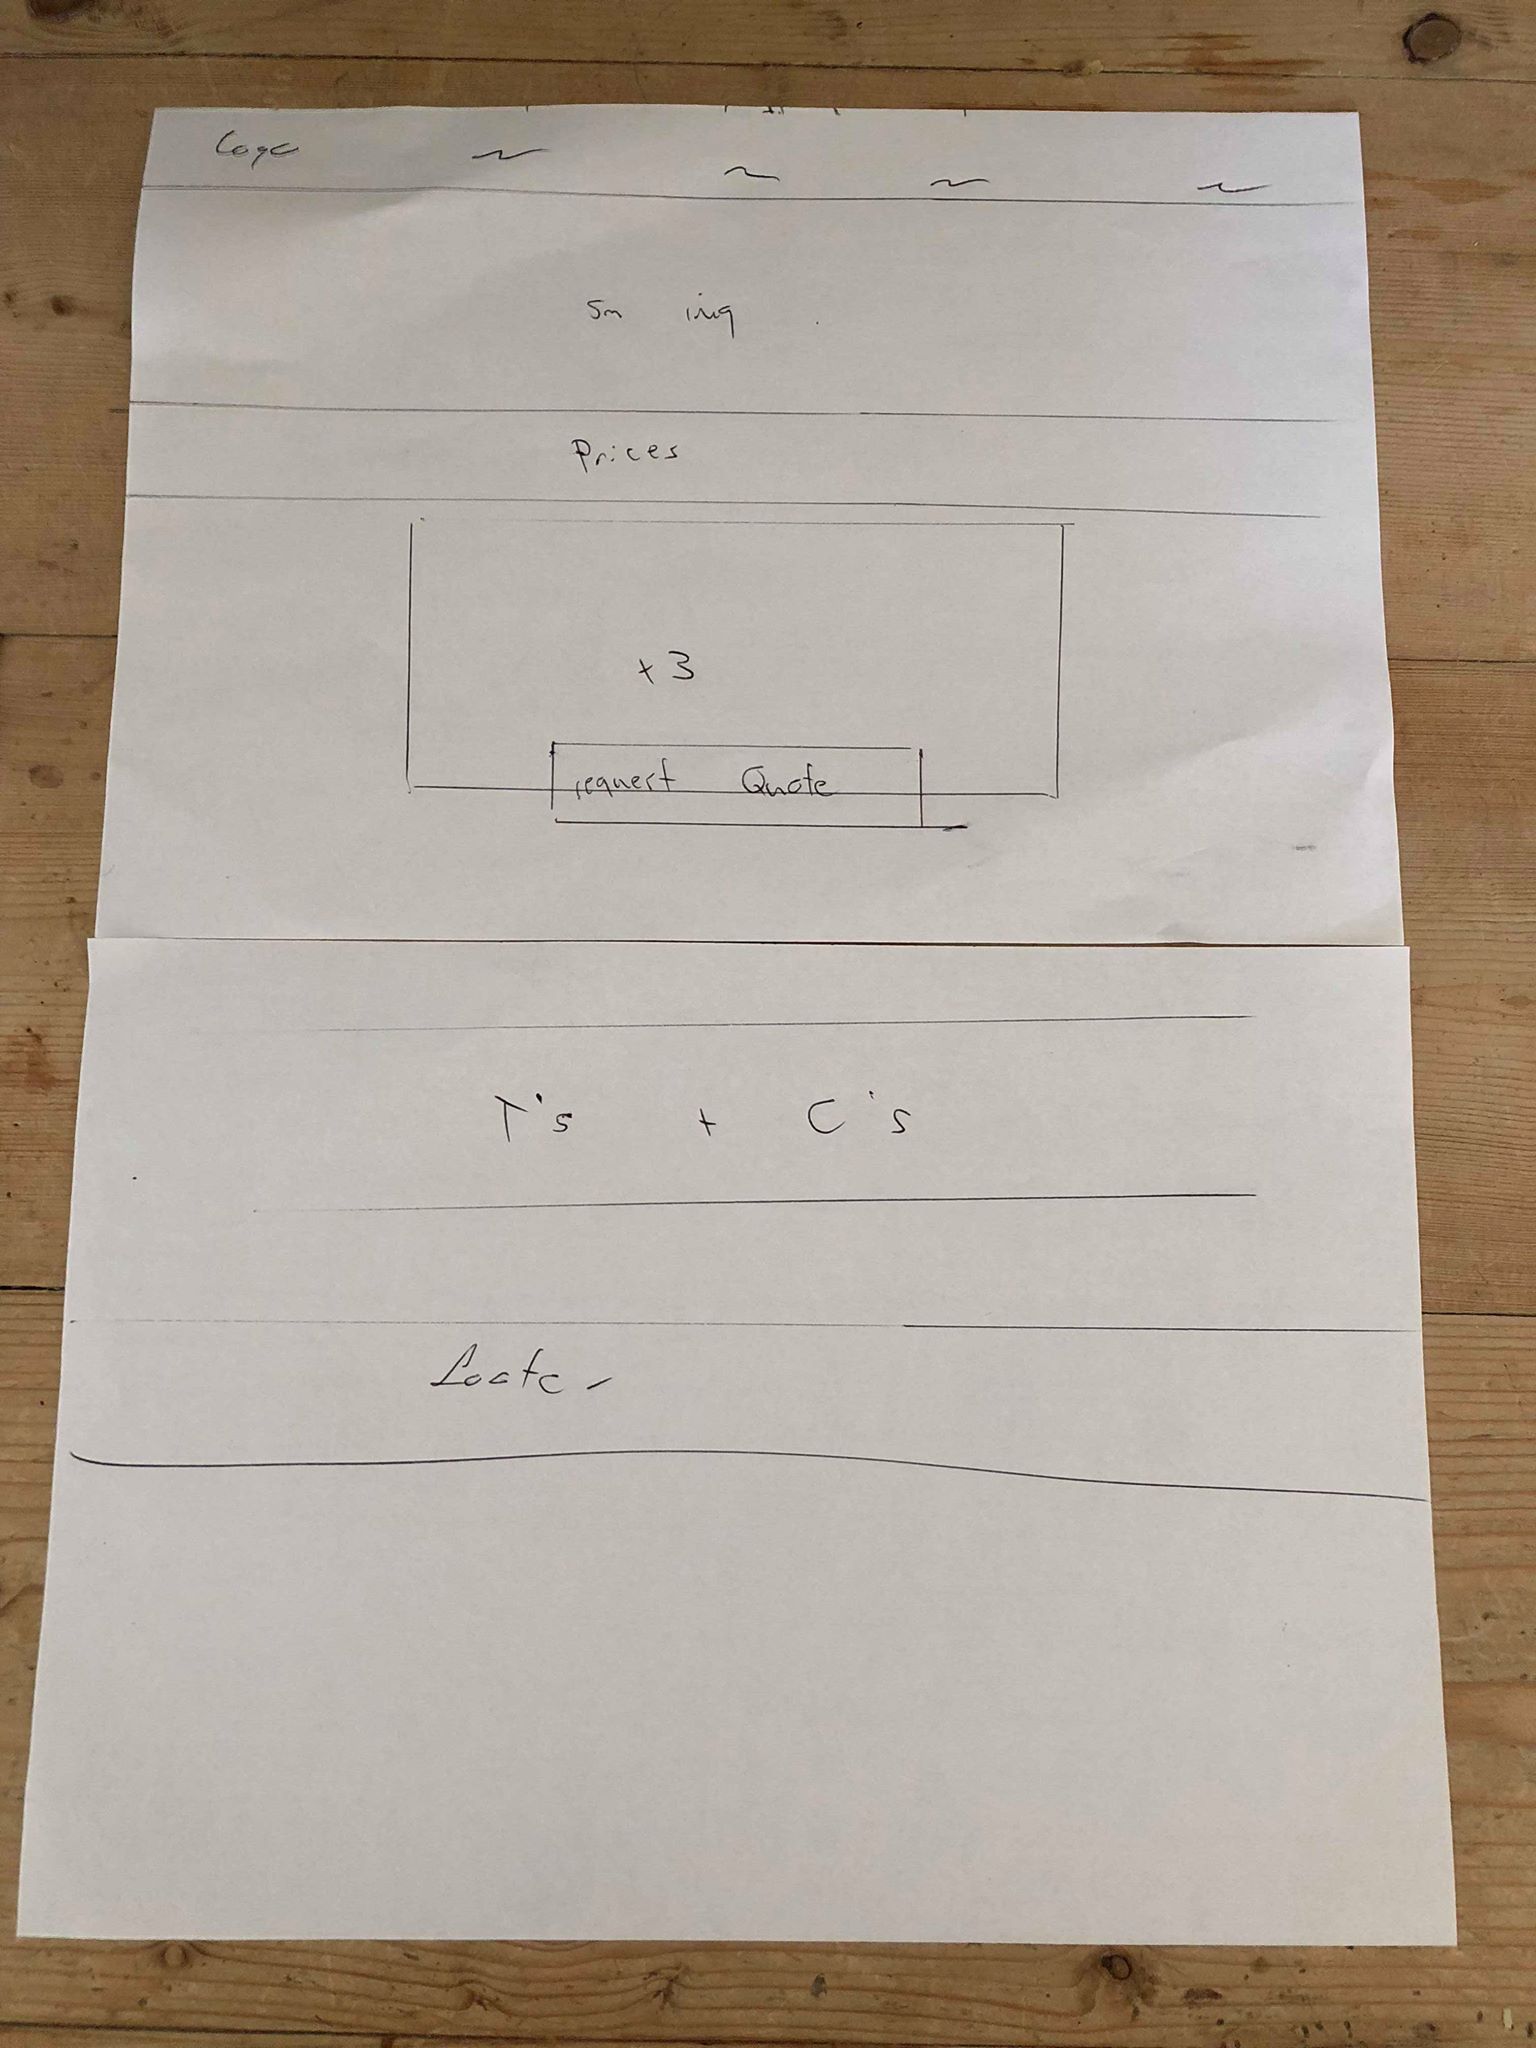 Logo
Sm img
Prices
x3
request Quote
T's + C's
footer